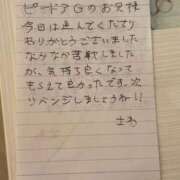 ピードアGのお兄様
今日は遊んでくださり
ありがとうございました
なかなか苦戦しました
が、気持ち良くなって
もらえて良かったです。次
リベンジしましょうね!!